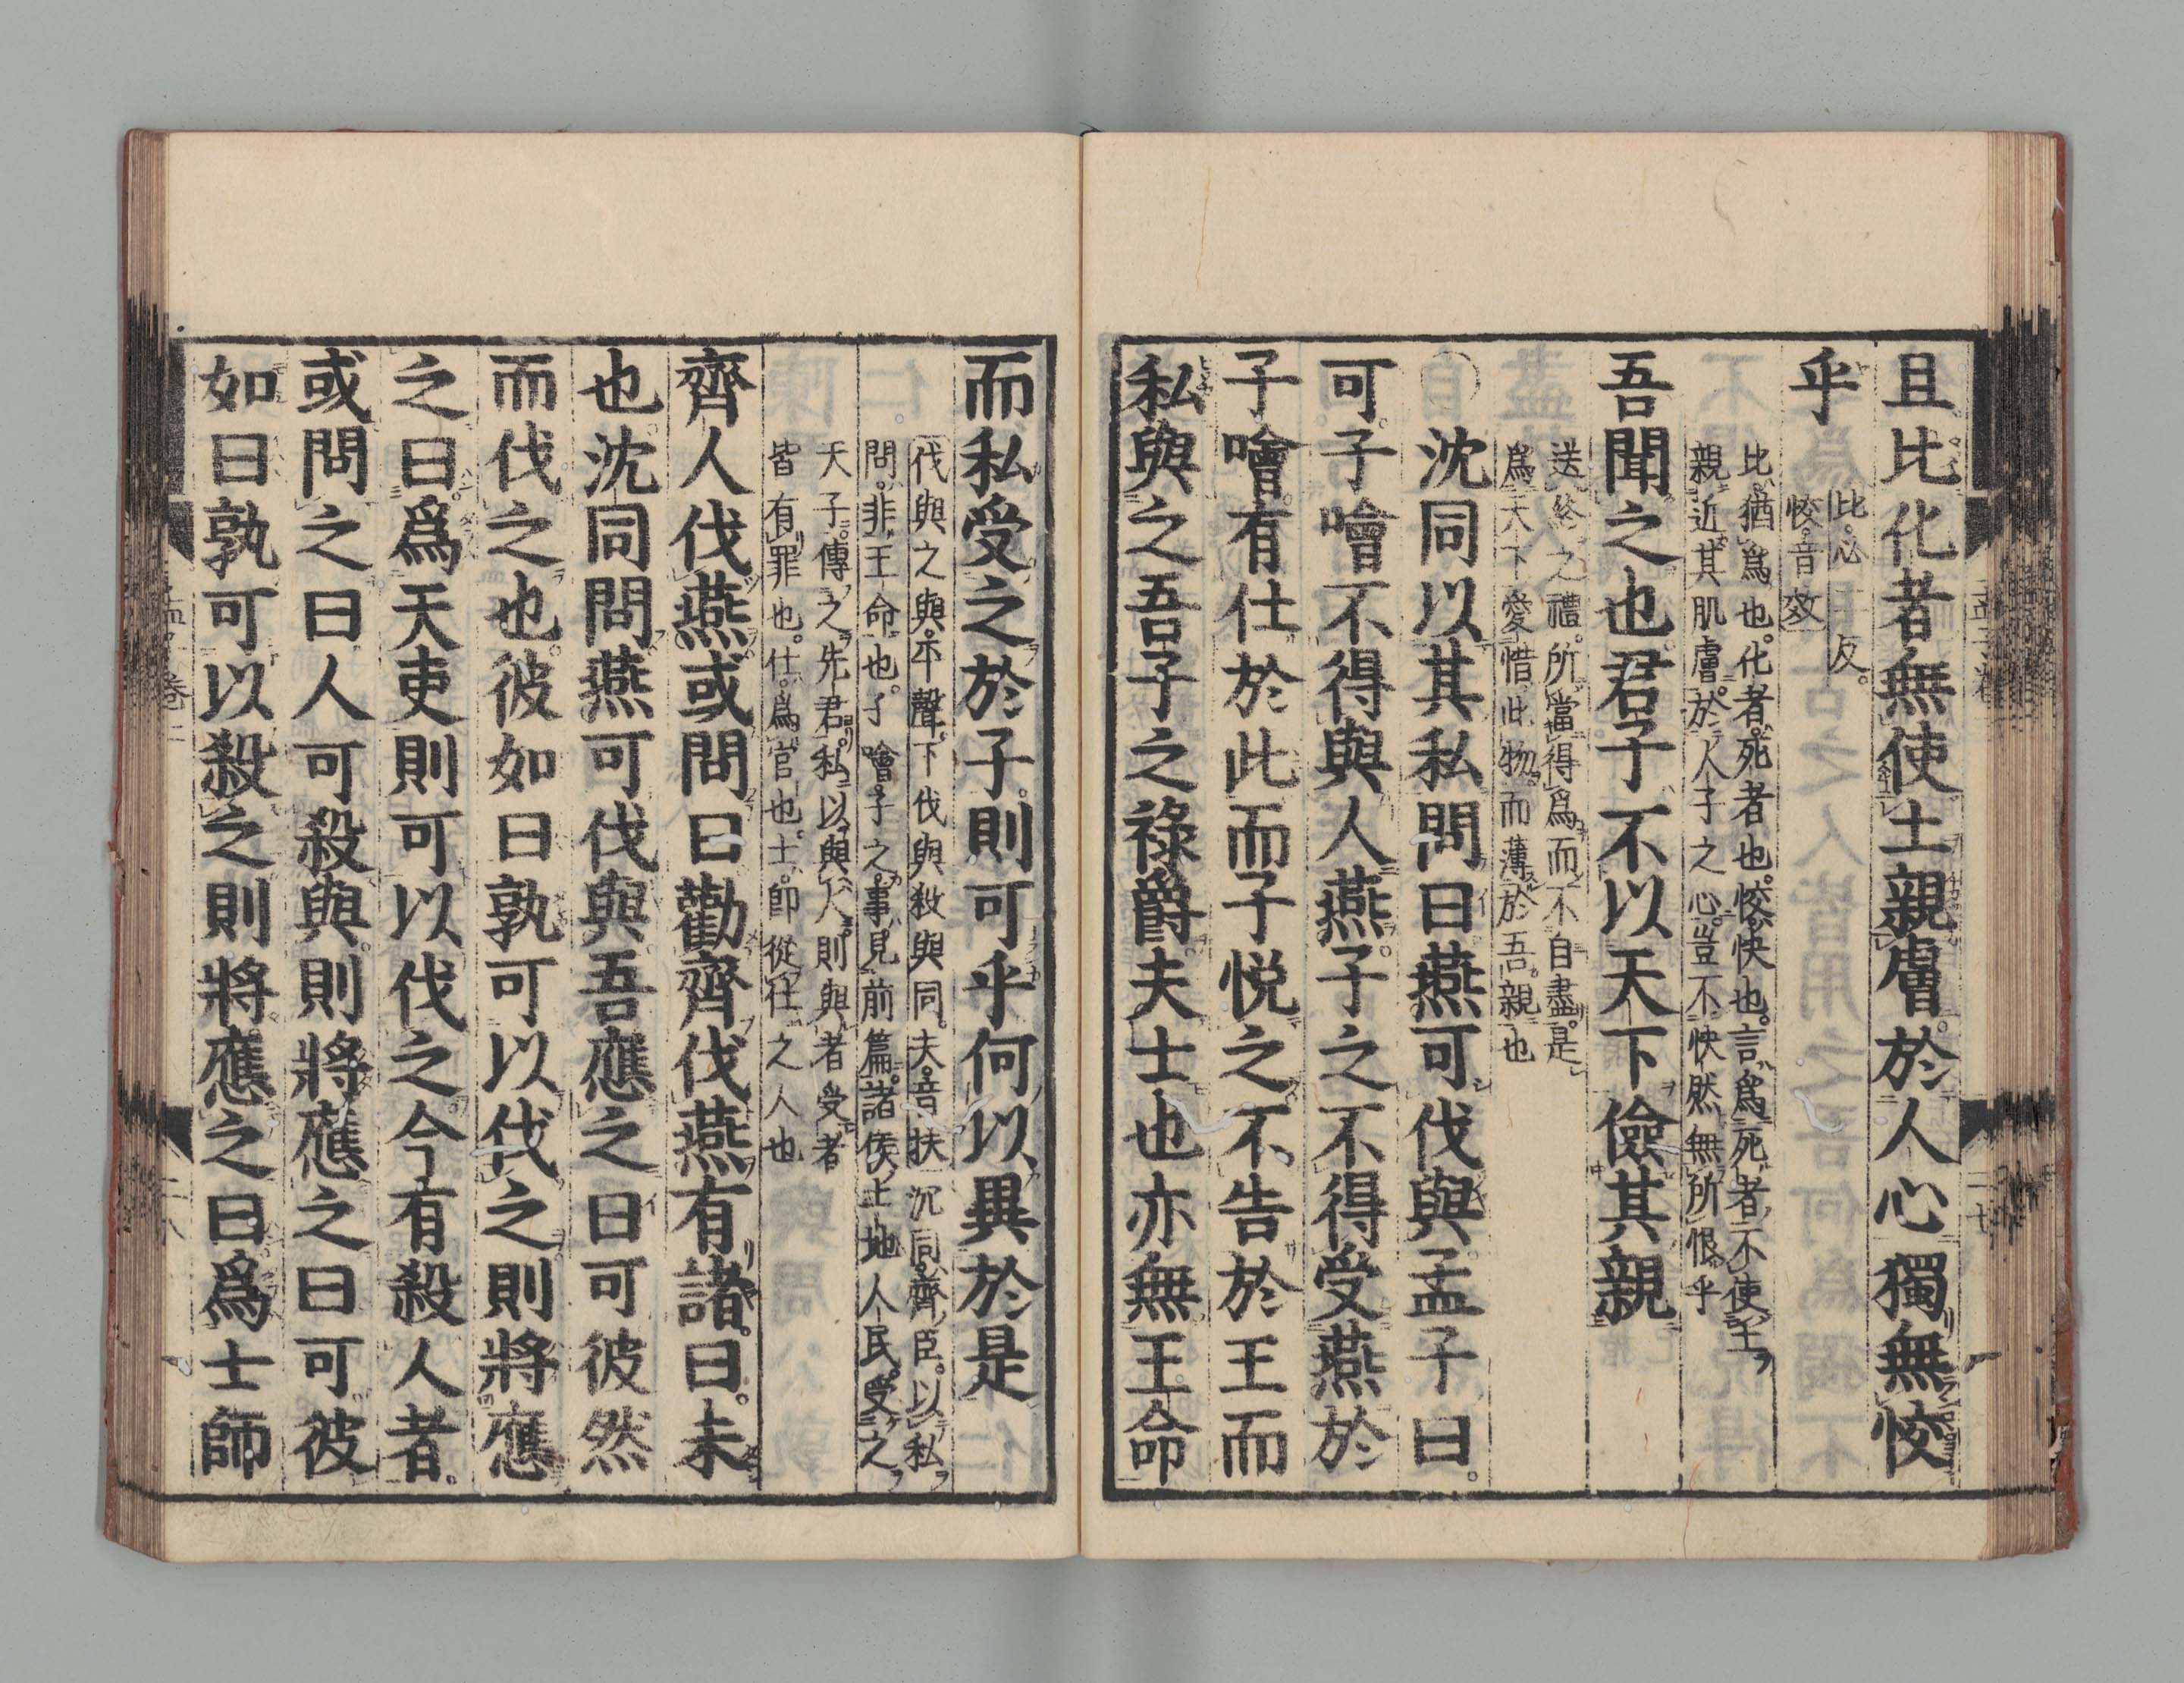 且比化者無使土親膚於人心獨無恔
乎
比必二反
恔音效
比猶爲也化者死者也恔快也言爲死者不使土
親近其肌膚於人子之心豈不快然無所恨乎
吾聞之也君子不以天下儉其親
送終之禮所當得爲而不自盡是
爲天下愛惜此物而薄於吾親也
○沈同以其私問曰燕可伐與孟子曰
可子噲不得與人燕子之不得受燕於
子噲有仕於此而子悦之不告於王而
私與之吾子之祿爵夫士也亦無王命
而私受之於子則可乎何以異於是
伐與之與平聲下伐與殺與同夫音扶沉同齊臣以私
問非王命也子噲子之事見前篇諸侯土地人民受之
天子傳之先君私以與人則與者受者
皆有罪也仕爲官也士即從仕之人也
齊人伐燕或問曰勸齊伐燕有諸曰未
也沈同問燕可伐與吾應之曰可彼然
而伐之也彼如曰孰可以伐之則將應
之曰爲天吏則可以伐之今有殺人者
或問之曰人可殺與則將應之曰可彼
如曰孰可以殺之則將應之曰爲士師